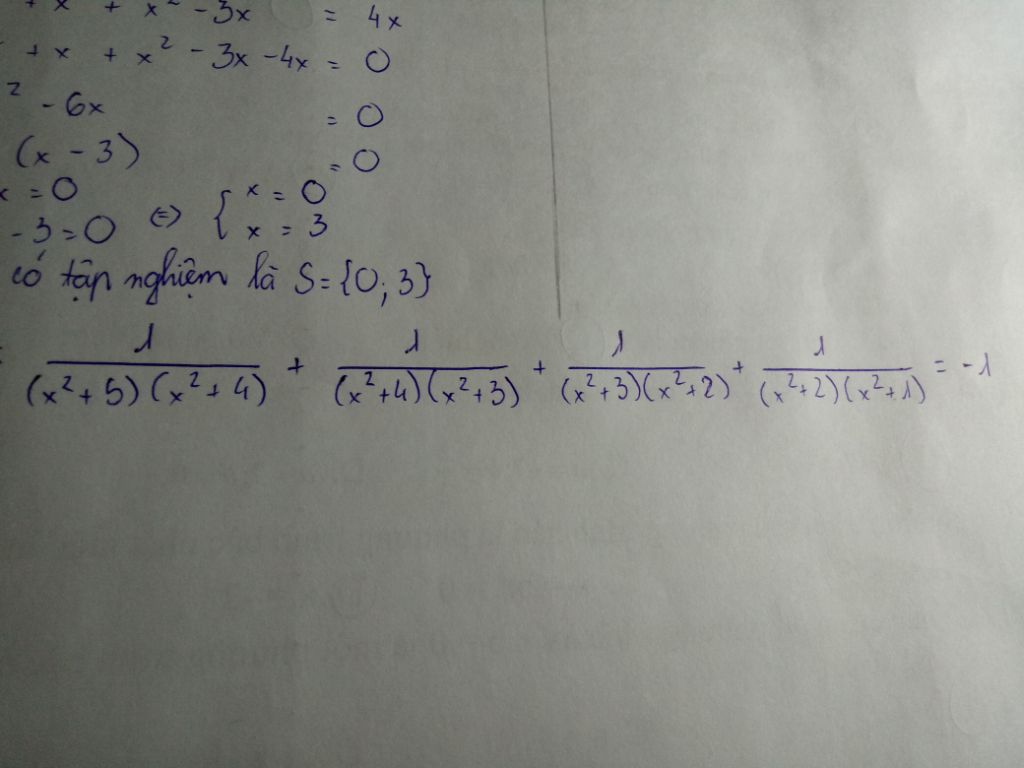 + x + x² - 3x = 4x
+ x + x² - 3x - 4x = 0
² - 6x = 0
(x - 3) = 0
x = 0
- 3 = 0 <=> { x = 0 x = 3
có tập nghiệm là S = {0; 3}
1/((x² + 5)(x² + 4)) + 1/((x² + 4)(x² + 3)) + 1/((x² + 3)(x² + 2)) + 1/((x² + 2)(x² + 1)) = -1